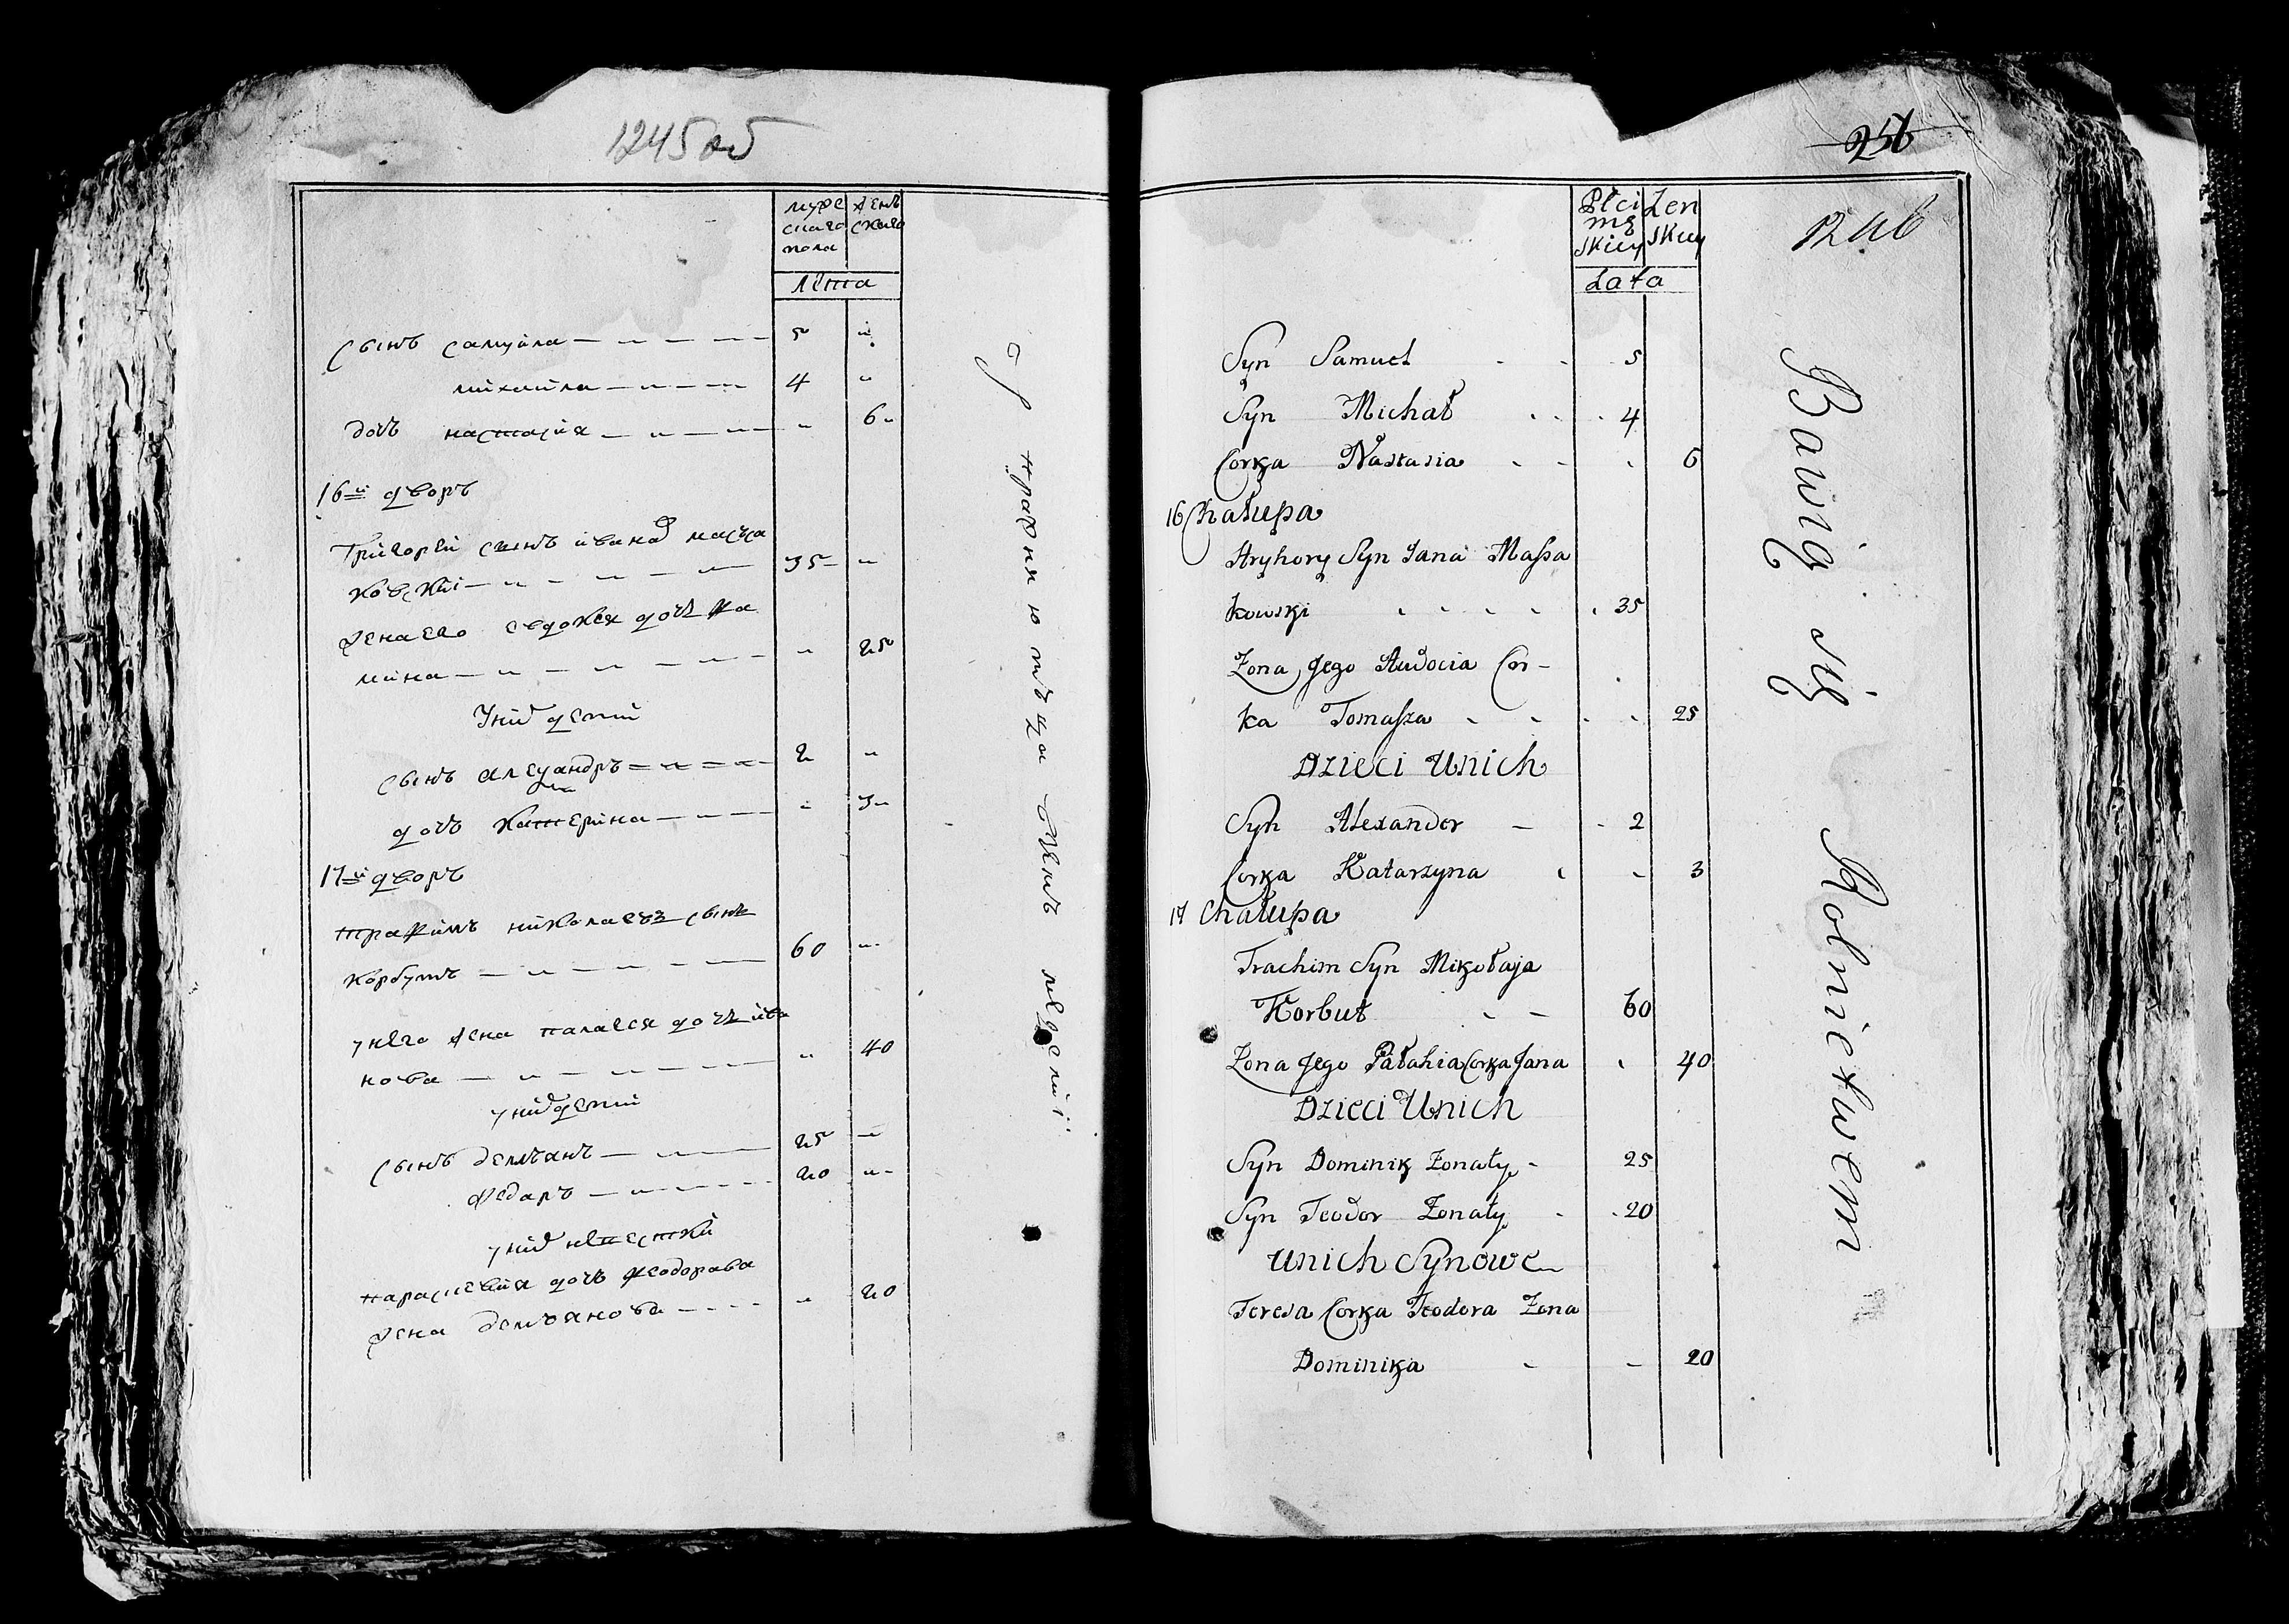 1245 об
муже
скаго
пола
жен
скаго
лѣта
сынъ самуйла 5 "
михайла 4 "
дочь настасия " 6
16й дворъ
Григорей сынъ ивана масса
ковски 35 "
жена его евдокея дочь
мина " 25
У них дети
сынъ александръ 2 "
дочь катерина " 3
17й дворъ
трафимъ николаевъ сынъ
корбутъ 60 "
у него жена палагея дочь ива
нова " 40
у них дети
сынъ демьянъ 25
федаръ 20 "
у них невестки
парасковия дочь феодорава
жена демьянова " 20
256
1246
Płci
mę
skiey
Żen
skiey
Lata
Syn Samuel 5
Syn Michał 4
Corka Nastasia 6
16 Chałupa
Hryhory Syn Jana Massa
kowski 35
Zona Jego Audocia Cor-
ka Tomasza 25
Dzieci Unich
Syn Alexander 2
Corka Katarzyna 3
17 Chałupa
Trachim Syn Mikołaja
Korbut 60
Zona Jego Pałahia Corka Jana 40
Dzieci Unich
Syn Dominik Zonaty 25
Syn Teodor Zonaty 20
Unich Synowe
Teresa Corka Teodora Zona
Dominika 20
Bawią się Rolnictwem